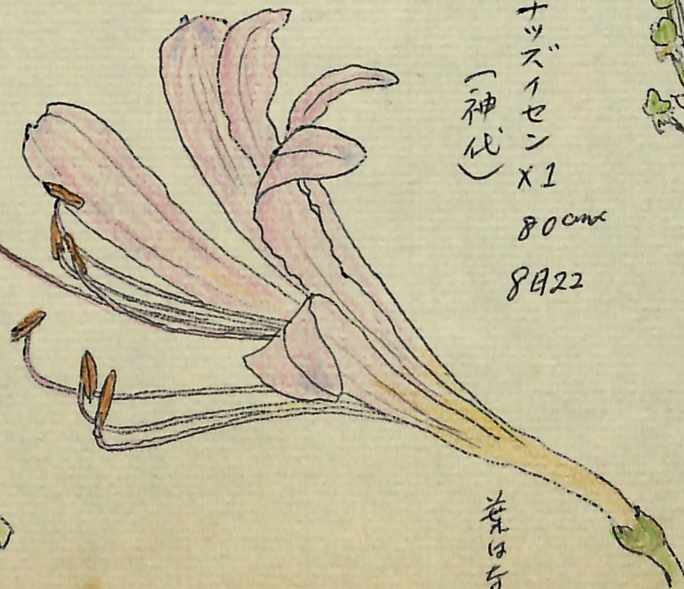 ナツズイセン ×1
(神代)
80cm
8月22
葉はな